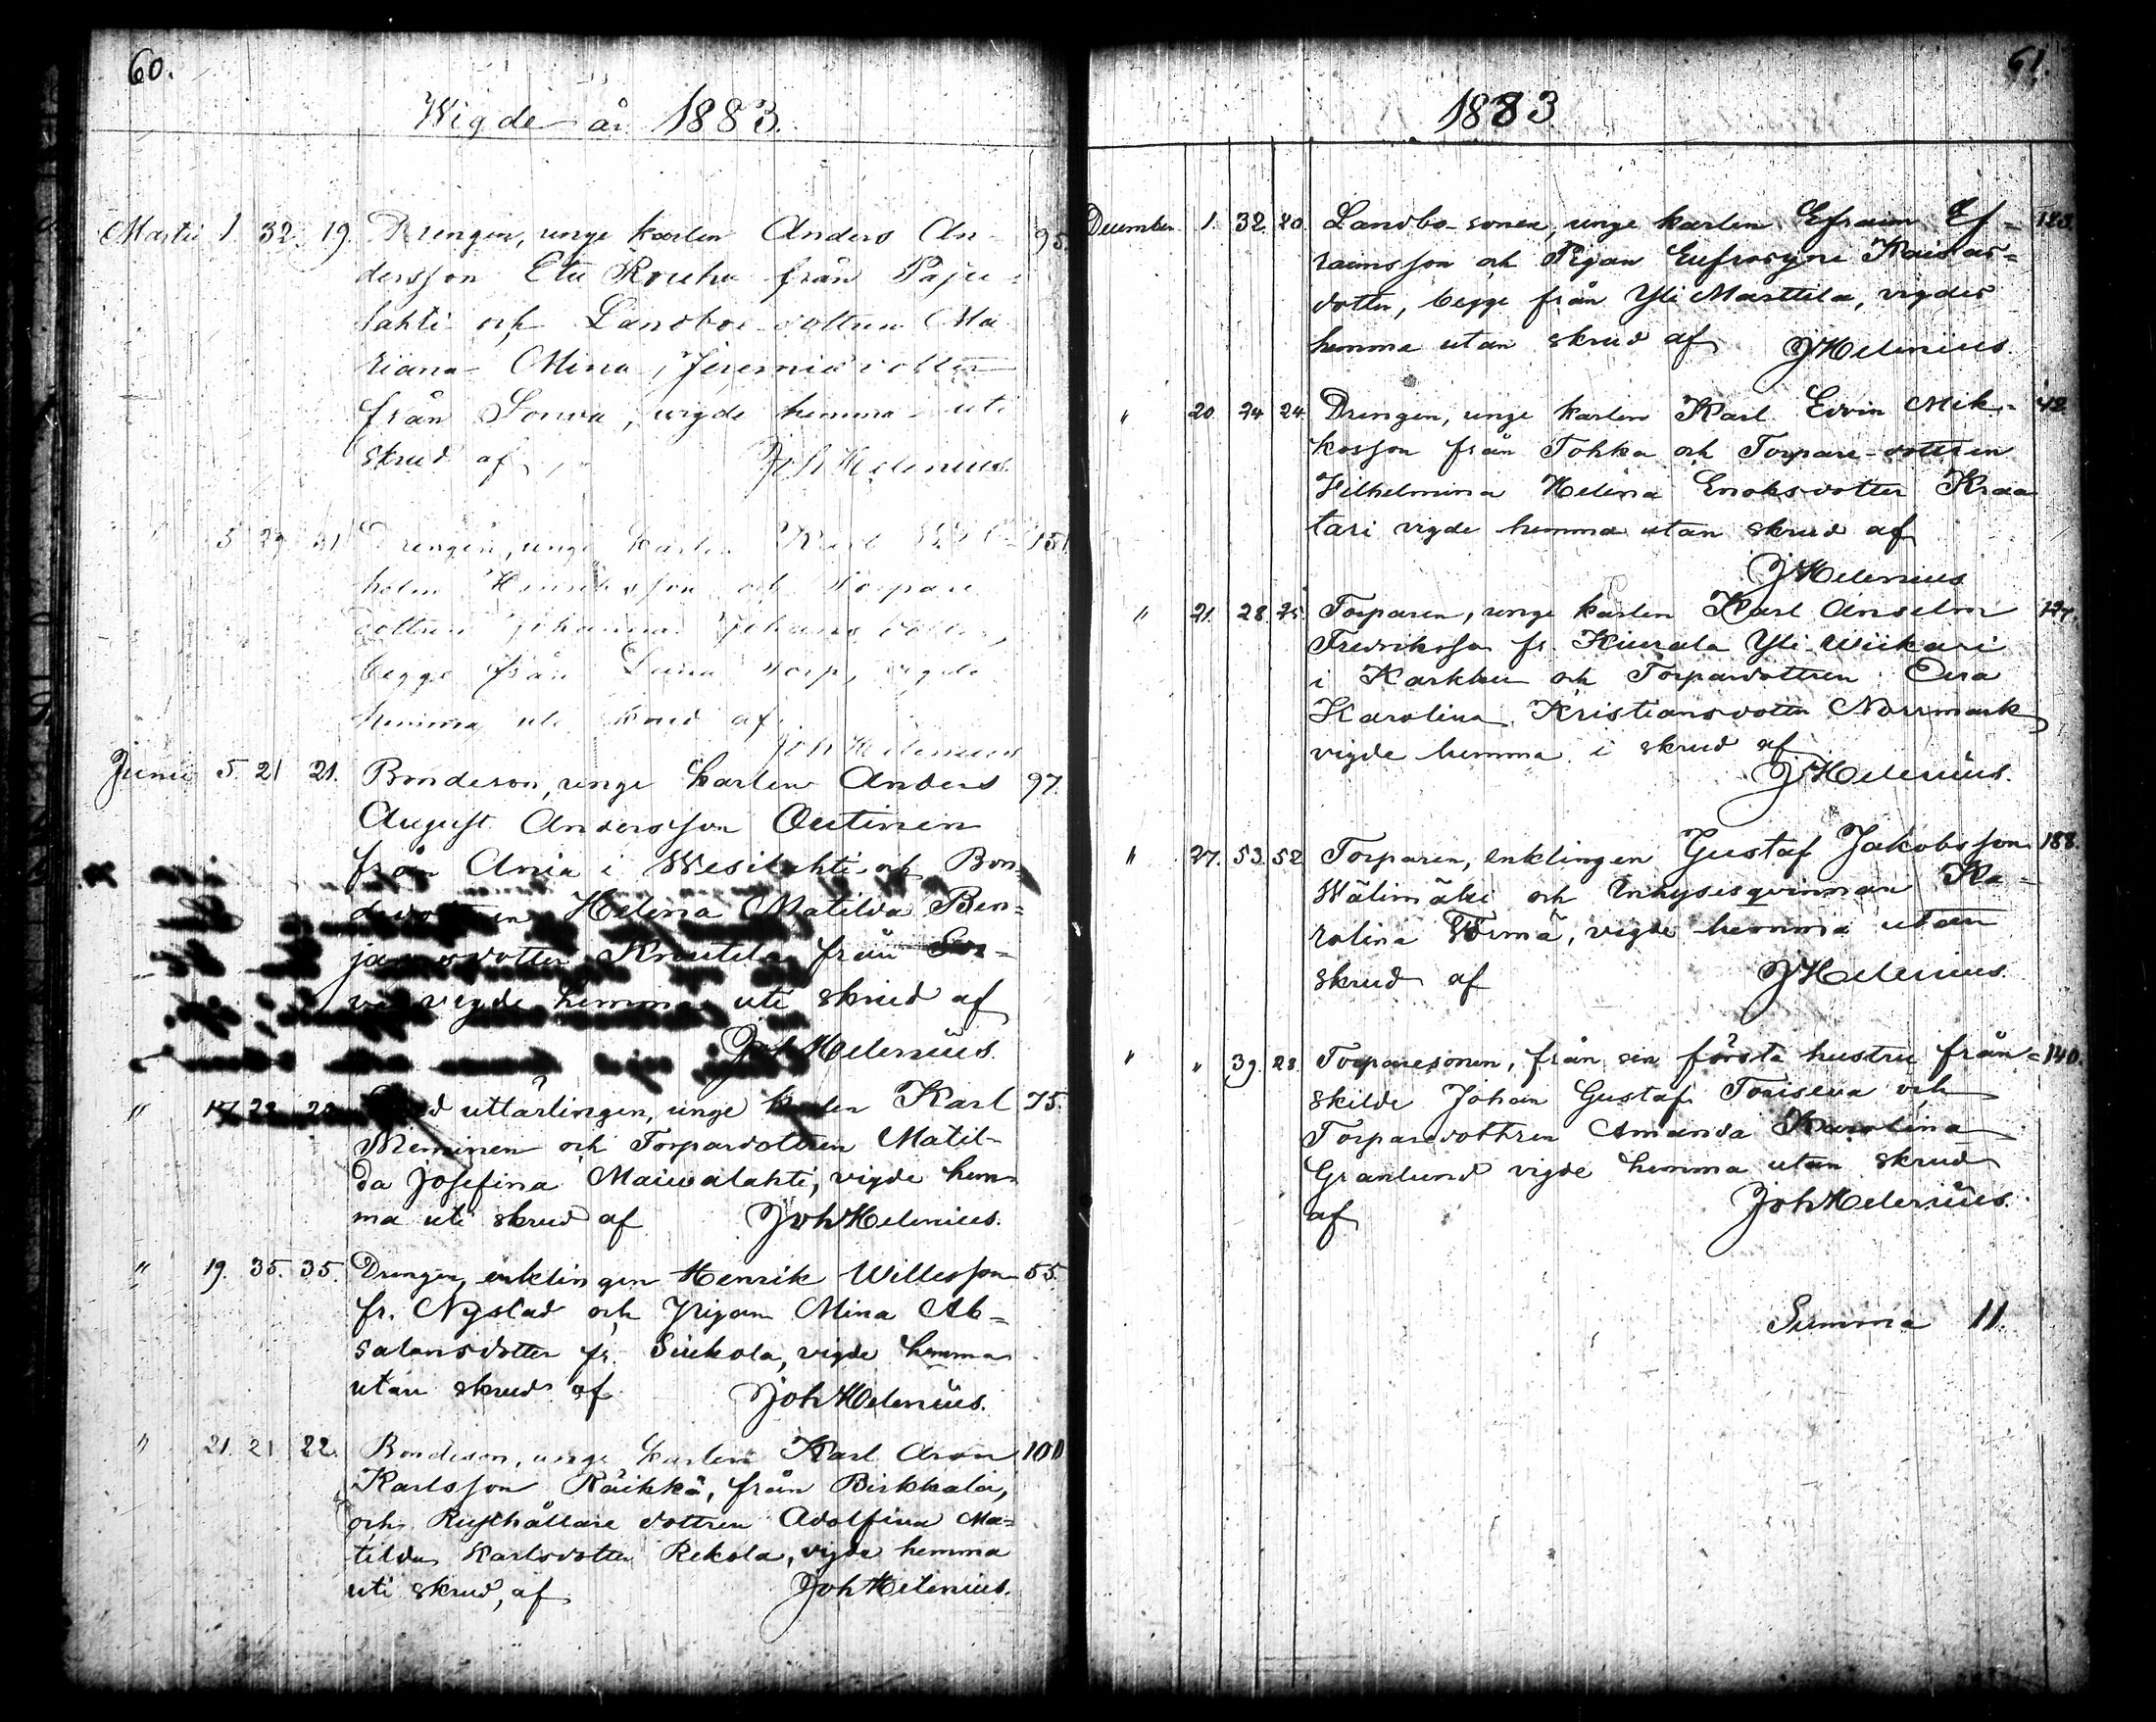 60.
Wigde år 1883.
Martii 1. 32. 19. Drengen, unge karlen Anders An- 95.
dersson Etu Rouhu från Paju-
lahti och Landboe dottren Ma
riana Mina Jeremiædotter
från Souva, vigde hemma uti
skrud af Joh Helenius.
" 5 29 31 Drengen, unge karlen Karl 151
holm Henriksson och Torpare
dottren Johanna Johans dotter,
begge från torp, vigde
hemma uti skrud af
Joh Helenius
Junii 5. 21 21. Bondeson, unge karlen Anders 97.
August Andersson Outinen
från Ania i Wesilahti och Bon-
dedottren Helena Matilda Ben-
jamsdotter Knuutila från Sou-
va vigde hemma uti skrud af
Joh Helenius.
" 17. 22 unge karlen Karl 75.
Nieminen och Torparedottren Matil-
da Josefina Maiwalahti, vigde hem-
ma uti skrud af Joh Helenius.
" 19. 35. 35. Drengen, enklingen Henrik Willesson 55.
fr. Nystad och Pigan Mina Ab=
salonsdotter fr. Siukola, vigde hemma
utan skrud af Joh Helenius.
" 21. 21 22. Bondeson, unge karlen Karl Aron 100
Karlsson Räikkä, från Birkkala,
och Rusthållare dottren Adolfina Ma=
tilda Karlsdotter Rekola, vigde hemma
uti skrud, af Joh Helenius.
61.
1883
December 1. 32. 20. Landbo-sonen, unge karlen Efraim Ef= 123.
raimsson och Pigan Eufrosyne Kaisas=
dotter, begge från Yli Marttila, vigdes
hemma utan skrud af JHelenius.
" 20. 24 24 Drengen, unge karlen Karl Edvin Mik- 42.
kosson från Tohka och Torpare-dottren
Vilhelmina Helena Enoksdotter Kraa
tari vigde hemma utan skrud af
JHelenius
" 21. 28. 25. Torparen, unge karlen Karl Anselm 124.
Fredriksson fr. Kiurala Yli Wiikari
i Karkku och Torparedottren Eva
Karolina Kristiansdotter Norrmark
vigde hemma i skrud af
JHelenius.
" 27. 53. 52 Torparen, enklingen Gustaf Jakobsson 188.
Wälimäki och Inhysesqvinnan Ka-
rolina Wirmä, vigde hemma utan
skrud af JHelenius.
" " 39. 28. Torparesonen, från sin första hustru från= 140.
skilde Johan Gustaf Toiseva och
Torparedottren Amanda Karolina
Granlund vigde hemma utan skrud
af Joh Helenius.
Summa 11.